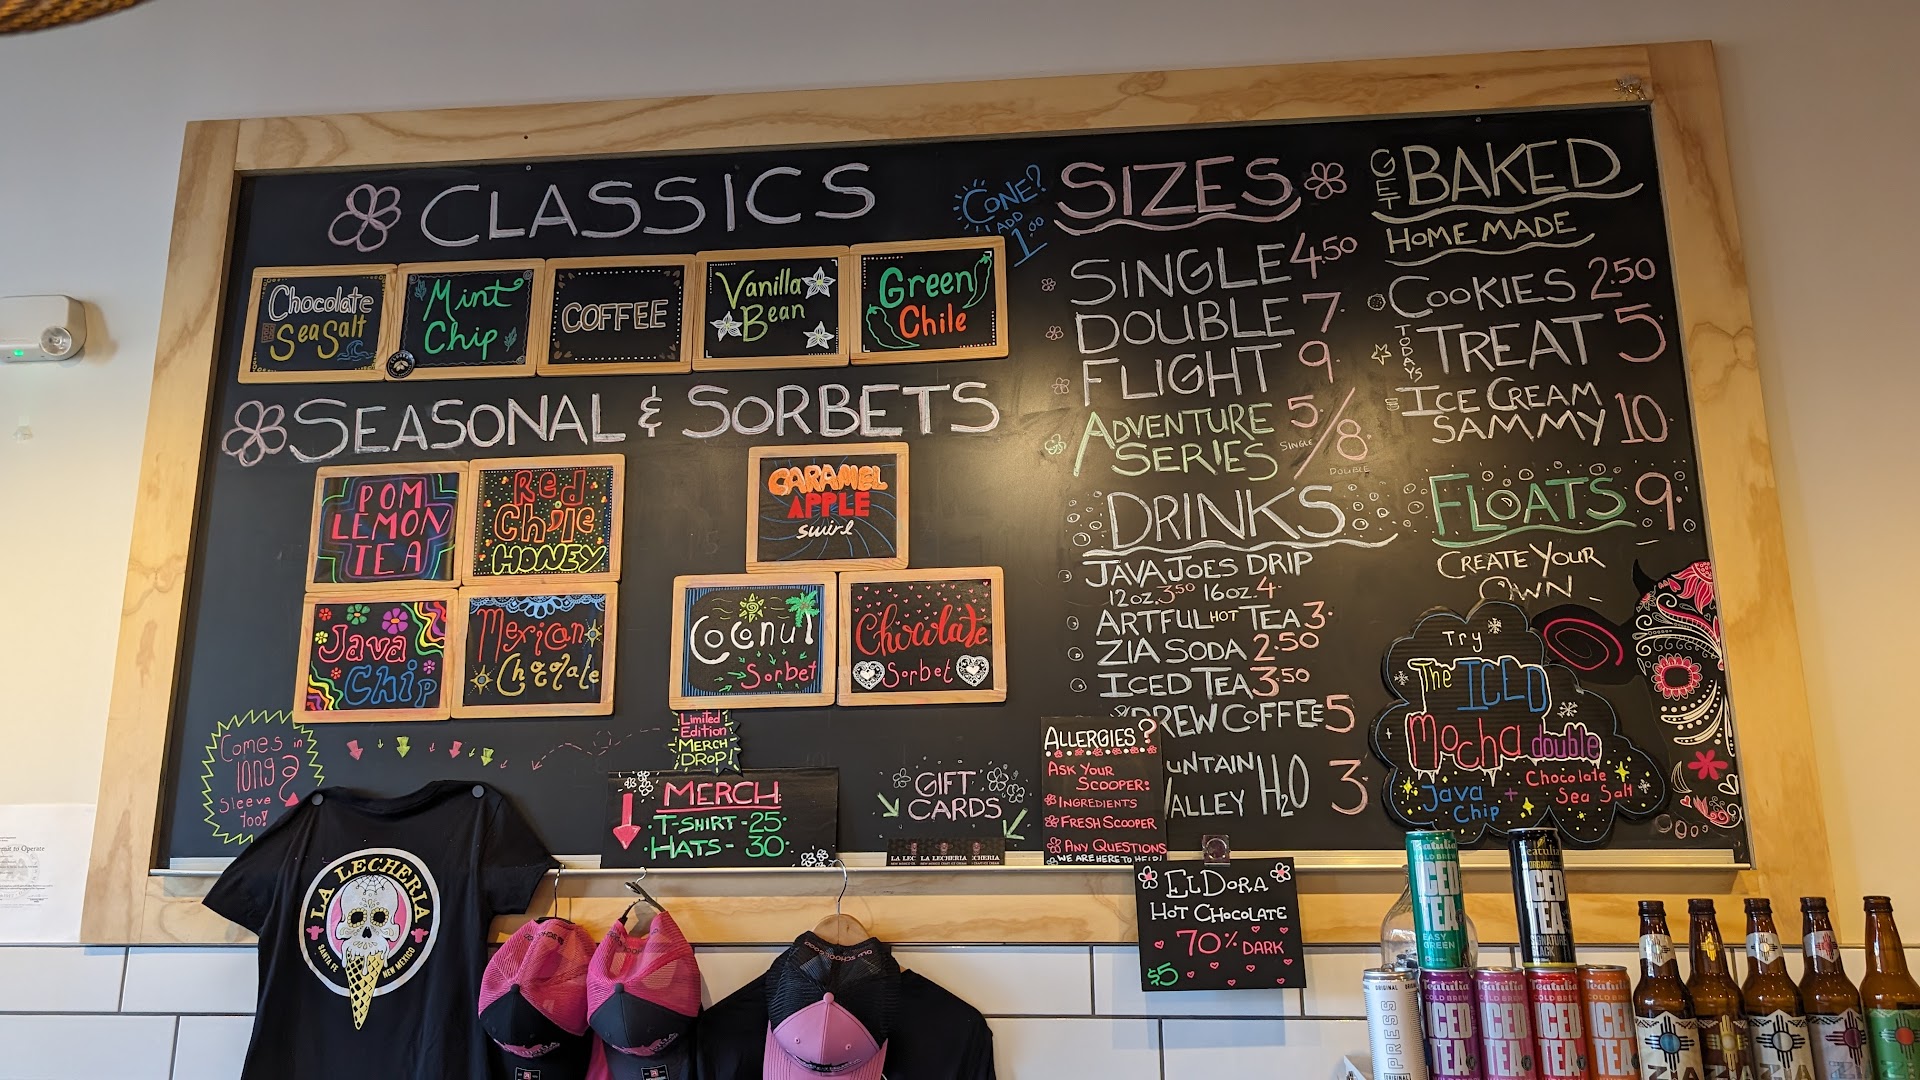 CLASSICS
CONE?
ADD
1.00
Chocolate
Sea Salt
Mint
Chip
COFFEE
Vanilla
Bean
Green
Chile
SEASONAL & SORBETS
POM
LEMON
TEA
Red
Chile
HONEY
CARAMEL
APPLE
swirl
Java
Chip
Mexican
Chocolate
Coconut
Sorbet
Chocolate
Sorbet
SIZES
SINGLE 4.50
DOUBLE 7.
FLIGHT 9.
ADVENTURE
SERIES
5./8.
SINGLE
DOUBLE
DRINKS
JAVA JOES DRIP
12oz. 3.50 16oz. 4.
ARTFUL HOT TEA 3.
ZIA SODA 2.50
ICED TEA 3.50
BREW COFFEE 5
UNTAIN
VALLEY H2O 3.
GET BAKED
HOMEMADE
COOKIES 2.50
TODAYS TREAT 5.
ICE CREAM
SAMMY 10.
FLOATS 9.
CREATE YOUR
OWN -
Try
The ICED
Mocha double
Java
Chip
+ Chocolate
Sea Salt
Comes in
long
Sleeve
too!
Limited
Edition
MERCH
DROP!
MERCH
T-SHIRT - 25.
HATS - 30.
GIFT
CARDS
LA LEC
LA LECHERIA
CHERIA
ALLERGIES?
ASK YOUR
SCOOPER:
INGREDIENTS
FRESH SCOOPER
ANY QUESTIONS
WE ARE HERE TO HELP!
ELDORA
HOT CHOCOLATE
70% DARK
$5
LA LECHERIA
SANTA FE
NEW MEXICO
mit to Operate
Teatulia
COLD BREW
ICED
TEA
EASY
GREEN
Teatulia
ORGANIC
ICED
TEA
SIGNATURE
BLACK
ORIGINAL
PRESS
ORIGINAL
Teatulia
COLD BREW
ICED
TEA
Teatulia
COLD BREW
ICED
TEA
Teatulia
COLD BREW
ICED
TEA
Teatulia
ICED
TEA